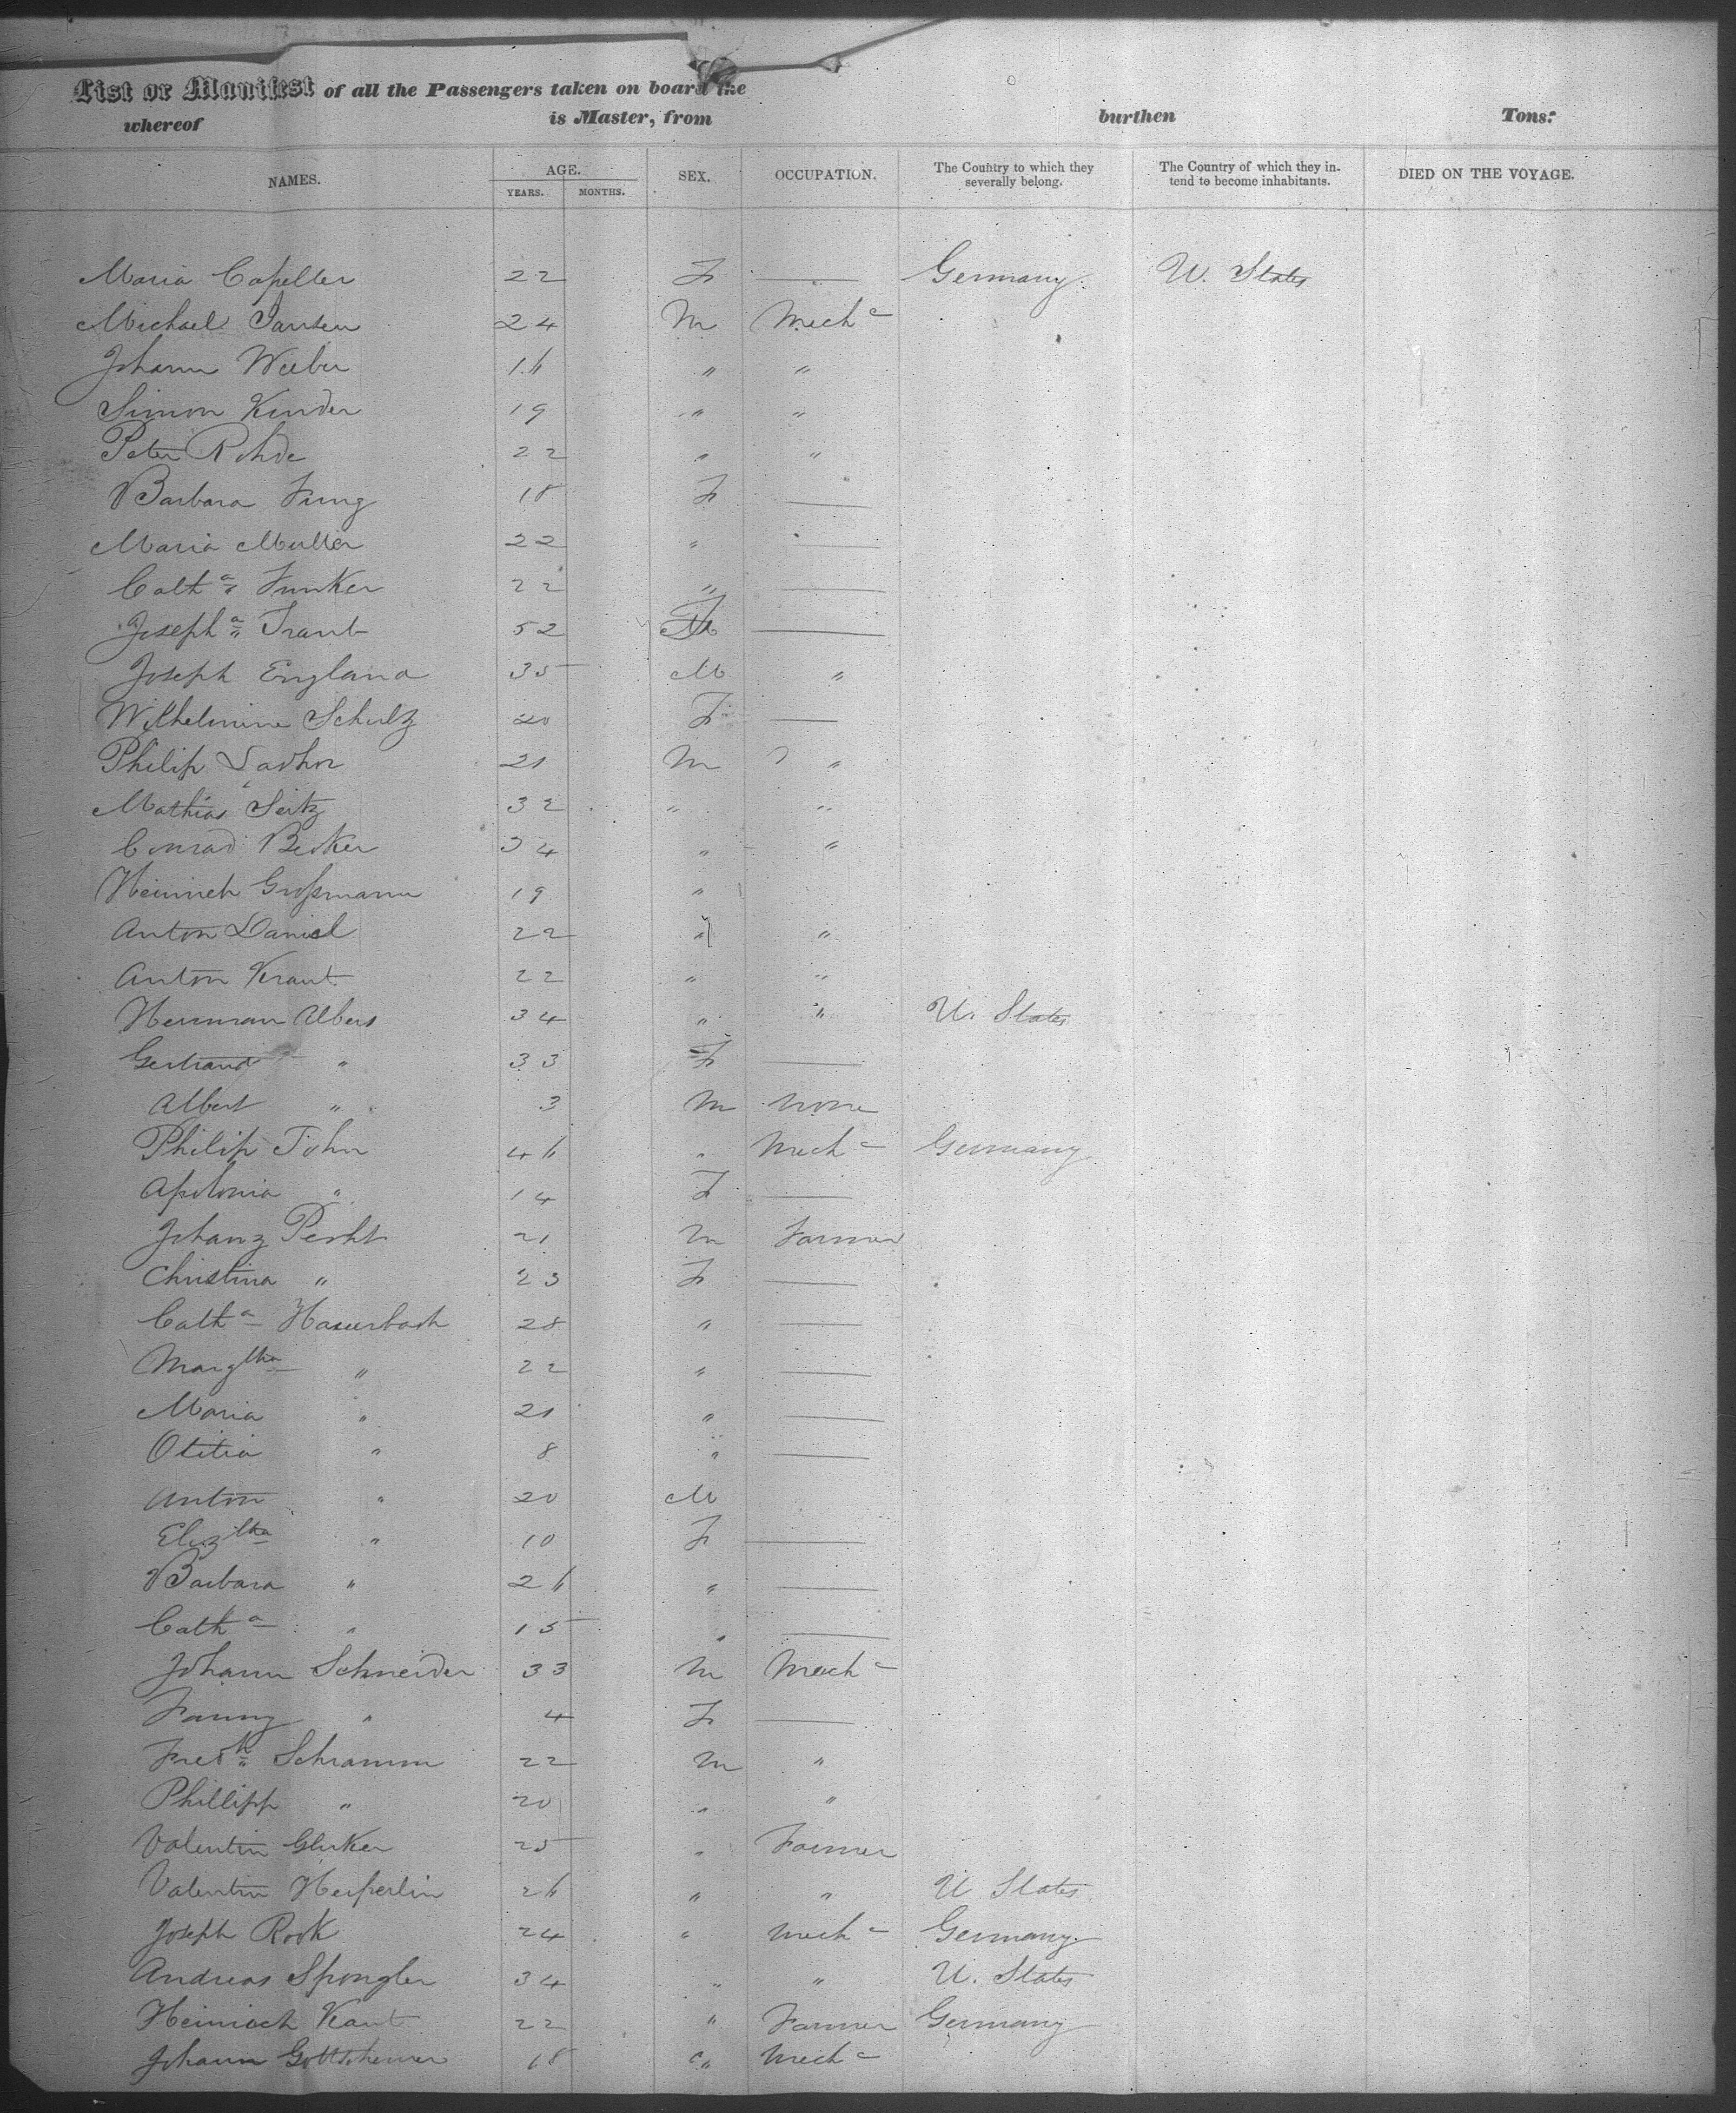 List or Manifest of all the Passengers taken on board the
whereof is Master, from burthen Tons:
NAMES. AGE. YEARS. MONTHS. SEX. OCCUPATION. The Country to which they severally belong. The Country of which they intend to become inhabitants. DIED ON THE VOYAGE.
Maria Capeller 22 F — Germany U. States
Michael Jansen 24 M Mechc
Johann Weeber 16 " "
Simon Kinder 19 " "
Peter Rohde 22 " "
Barbara Jung 18 F —
Maria Muller 22 " —
Catha Junker 22 " —
Josepha Traub 52 F —
Joseph England 35 M "
Wilhelmine Schultz 20 F —
Philip 21 M "
Mathias Seitz 32 " "
Conrad Becker 34 " "
Heinrich Großmann 19 "
Anton Daniel 22 " "
Anton Kraut 22 " "
Herrman Albers 34 " " U. States
Gertraud " 33 F —
Albert " 3 M None
Philip John 46 " Mechc Germany
Apolonia " 14 F —
Johanz Pecht 21 M Farmer
Christina " 23 F —
Catha Hauerbach 28 " —
Margtha " 22 " —
Maria " 21 " —
Otitia " 8 " —
Anton " 20 M
Eliztha " 10 F —
Barbara " 26 " —
Catha " 15 " —
Johann Schneider 33 M Mechc
Fanny " 4 F —
Fredk Schramm 22 M "
Phillipp " 20 " "
Valentin Gluker 25 " Farmer
Valentin Heiperlin 26 " " U States
Joseph Rook 24 " Mechc Germany
Andreas Spongler 34 " " U. States
Heinrich Kant 22 " Farmer Germany
Johann Gottsheimer 18 " Mechc